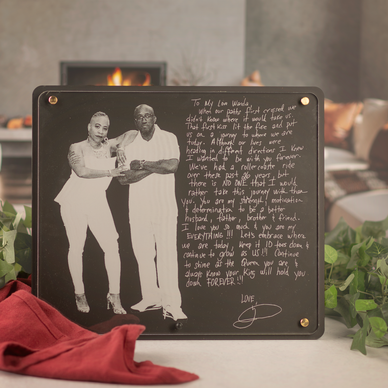 To My Love Wanda,
When our paths first crossed we
didn't know where it would take us.
That first kiss lit the fire and put
us on a journey to where we are
today. Although our lives were
heading in different directions I knew
I wanted to be with you forever.
We've had a rollercoaster ride
over these past 26 years, but
there is NO ONE that I would
rather take this journey with than
you. You are my strength, motivation
& determination to be a better
husband, father, brother & friend.
I love you so much & you are my
EVERYTHING!!! Let's embrace where
we are today, keep it 10 toes down &
continue to grow as US!!! Continue
to shine as the Queen you are &
always know your King will hold you
down FOREVER!!!
LOVE,